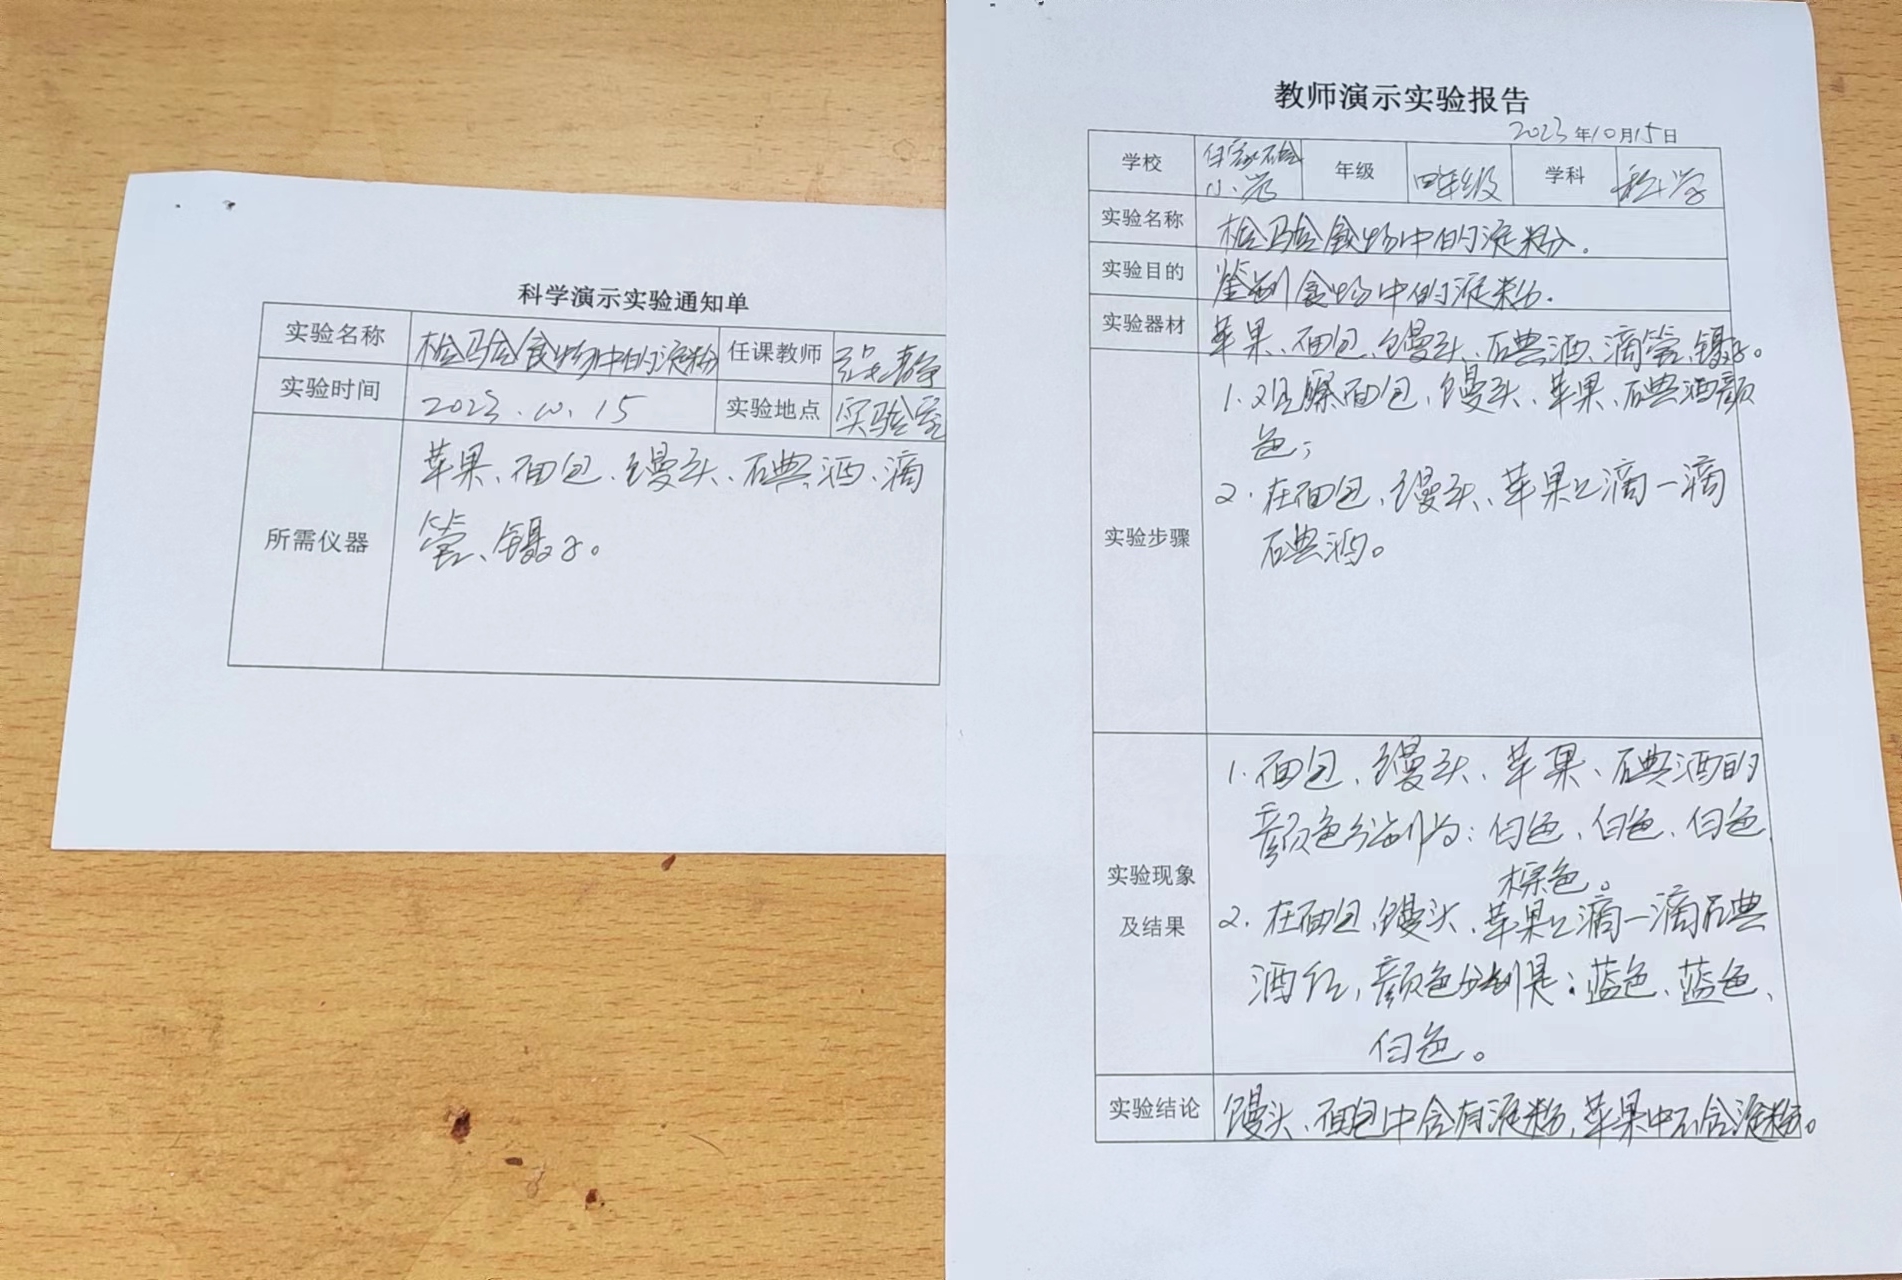 科学演示实验通知单
实验名称 检验食物中的淀粉 任课教师 吴静
实验时间 2023.10.15 实验地点 实验室
所需仪器
苹果、面包、馒头、碘酒、滴
管、镊子。
教师演示实验报告
2023年10月15日
学校 小学 年级 四年级 学科 科学
实验名称 检验食物中的淀粉。
实验目的 鉴别食物中的淀粉.
实验器材 苹果、面包、馒头、碘酒、滴管、镊子。
实验步骤
1.观察面包、馒头、苹果、碘酒颜
色;
2.在面包、馒头、苹果上滴一滴
碘酒。
实验现象
及结果
1.面包、馒头、苹果、碘酒的
颜色分别为:白色、白色、白色、
棕色。
2.在面包、馒头、苹果上滴一滴碘
酒后,颜色分别是:蓝色、蓝色、
白色。
实验结论 馒头、面包中含有淀粉,苹果中不含淀粉。